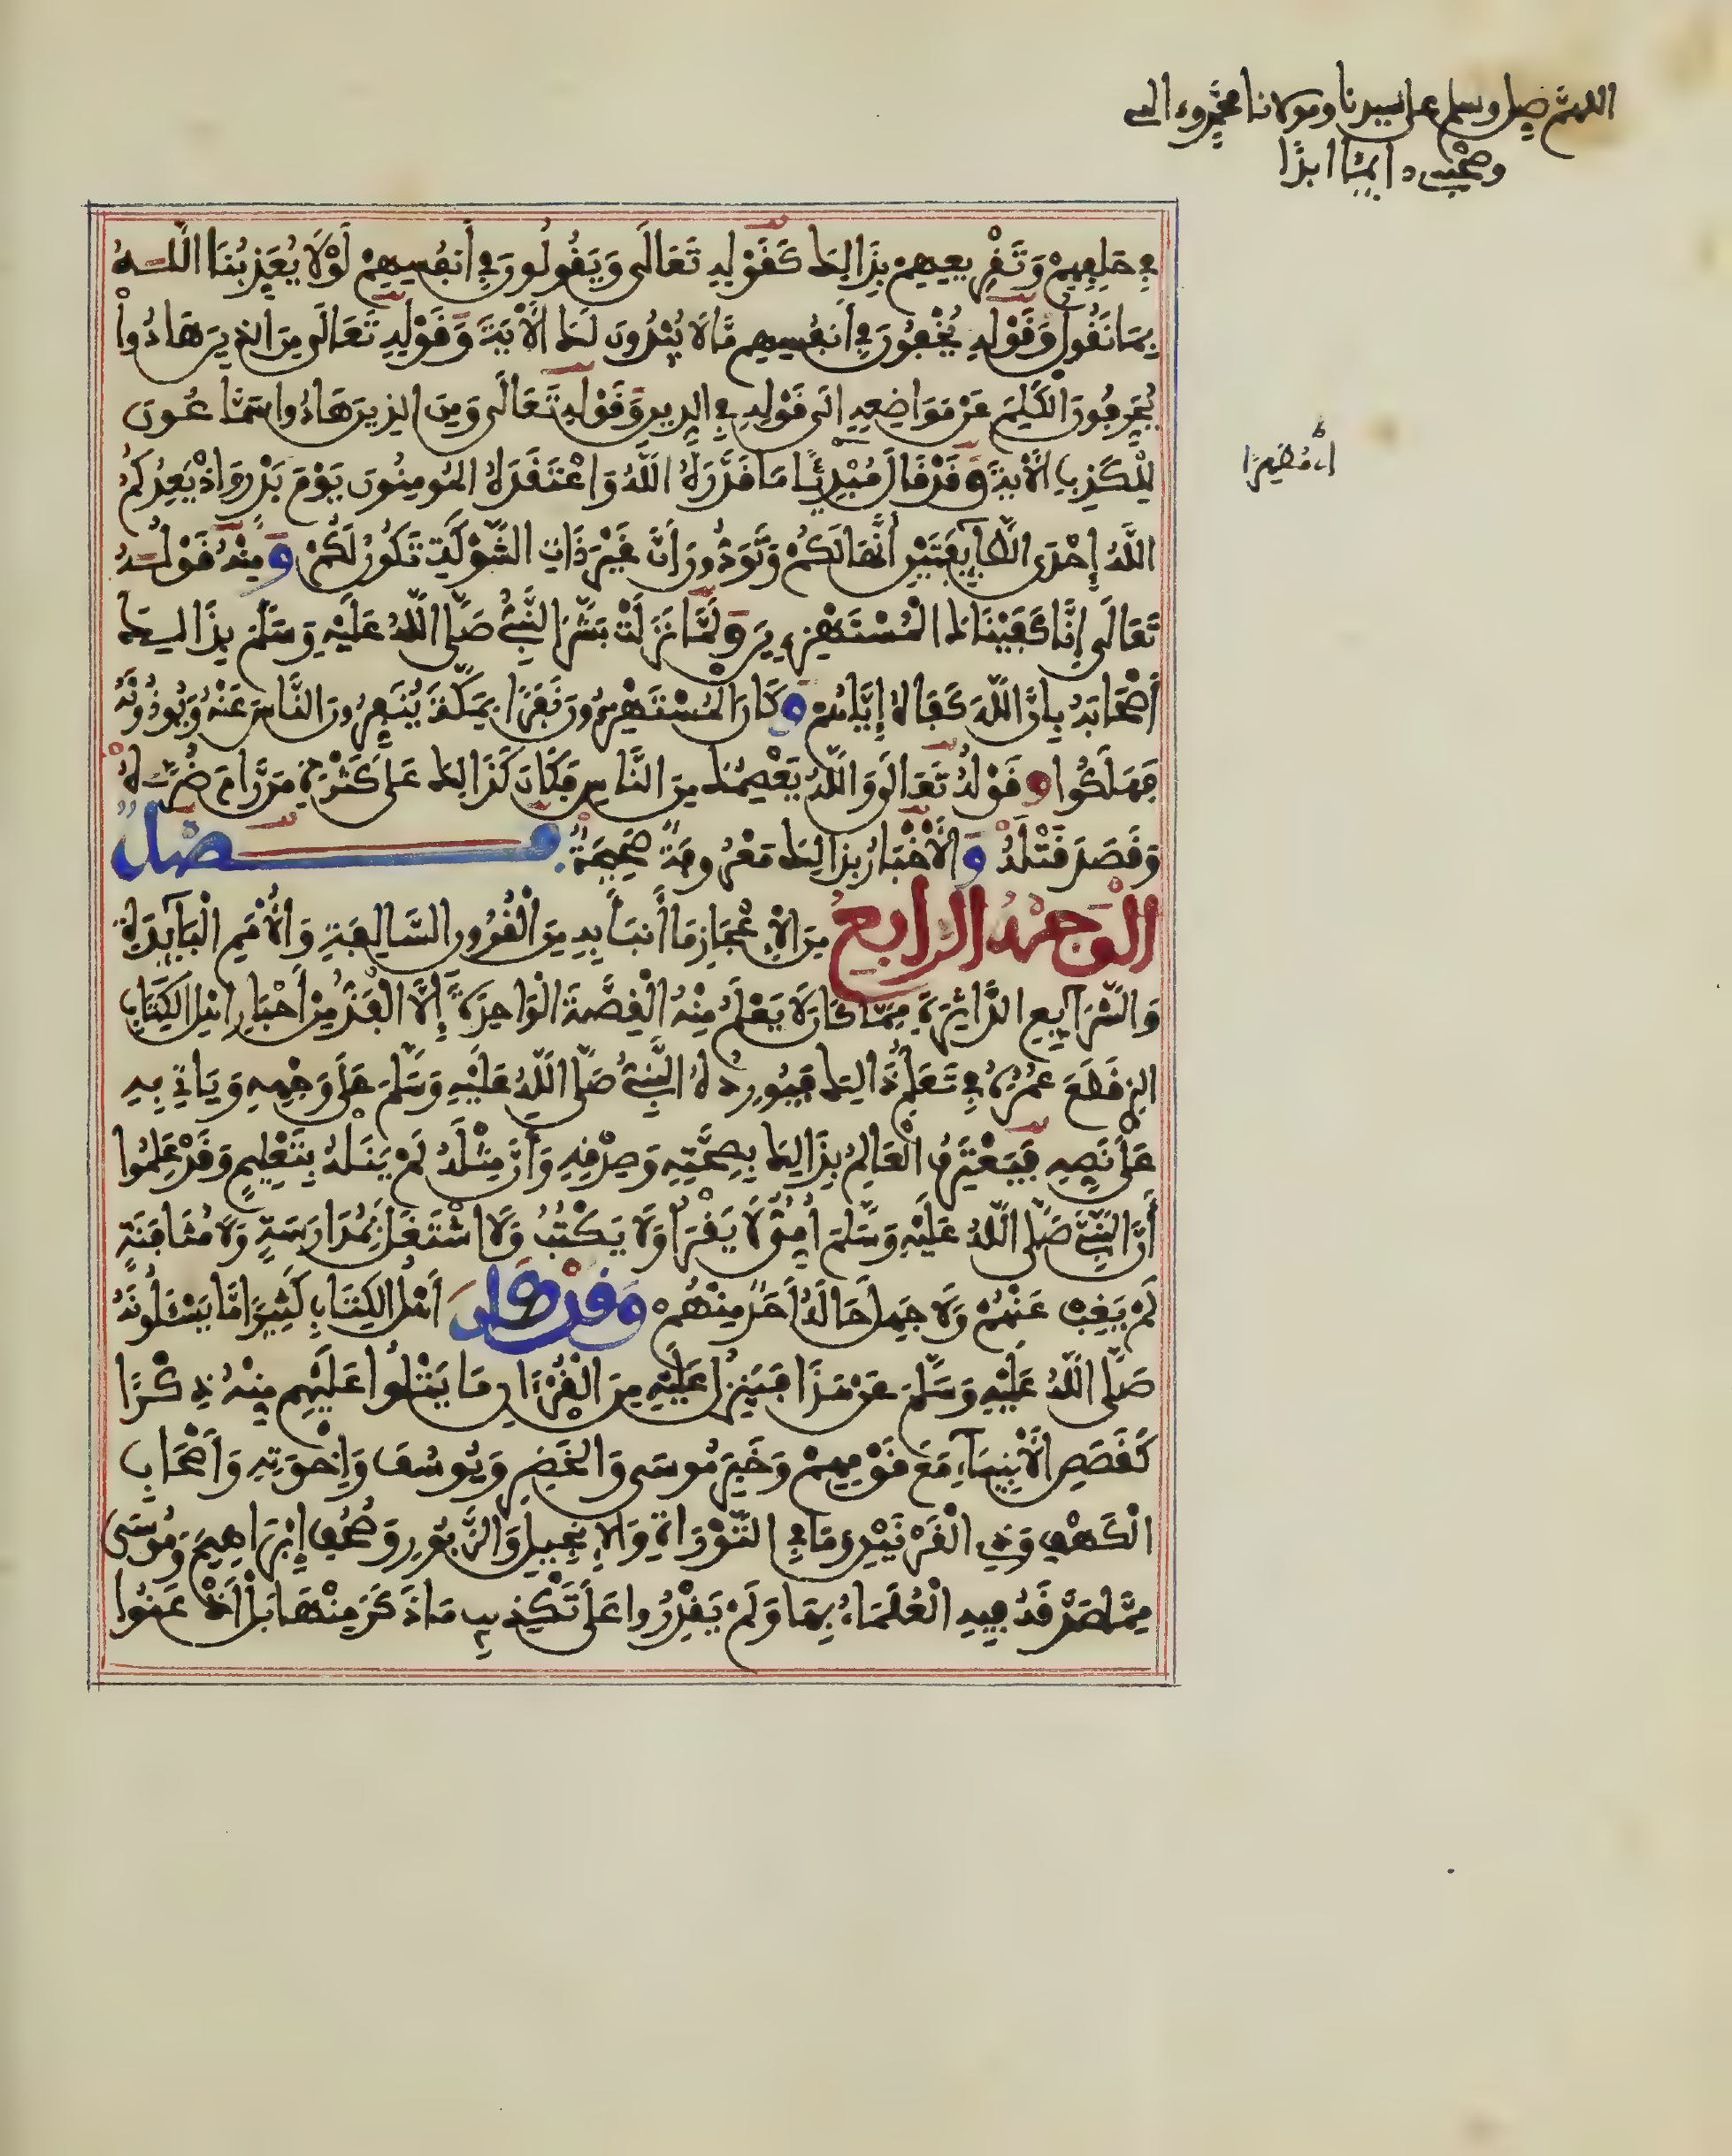 اللهم صل وسلم على سيدنا ومولانا محمد وءاله
وصحبه دايما ابدا
فِي حَلِفِهِمْ وَتَقْرِيعِهِمْ بِذَالِكَ كَقَوْلِهِ تَعَالَى وَيَقُولُونَ فِي أَنفُسِهِمْ لَوْلَا يُعَذِّبُنَا اللَّهُ
بِمَا نَقُولُ وَقَوْلِهِ يُخْفُونَ فِي أَنفُسِهِم مَّا لَا يُبْدُونَ لَكَ الْأَيَةَ وَقَوْلِهِ تَعَالَى مِنَ الذِينَ هَادُواْ
يُحَرِّفُونَ الْكَلِمَ عَن مَّوَاضِعِهِ إِلَى قَوْلِهِ فِي الدِّينِ وَقَوْلِهِ تَعَالَى وَمِنَ الذِينَ هَادُوا سَمَّاعُونَ
لِلْكَذِبِ الْأَيَةَ وَقَدْ قَالَ مُبْدِيًا مَا قَدَّرَهُ اللَّهُ وَاعْتَقَدَهُ الْمُومِنُونَ يَوْمَ بَدْرٍ وَإِذْ يَعِدُكُمُ
اللَّهُ إِحْدَى الطَّآئِفَتَيْنِ أَنَّهَا لَكُمْ وَتَوَدُّونَ أَنَّ غَيْرَ ذَاتِ الشَّوْكَةِ تَكُونُ لَكُمْ وَمِنْهُ قَوْلُهُ
تَعَالَى إِنَّا كَفَيْنَاكَ الْمُسْتَهْزِءِينَ وَلَمَّا نَزَلَتْ بَشَّرَ النَّبِيُّ صَلَّى اللَّهُ عَلَيْهِ وَسَلَّمَ بِذَالِكَ
أَصْحَابَهُ بِأَنَّ اللَّهَ كَفَاهُ إِيَّاهُمْ وَكَانَ الْمُسْتَهْزِءُونَ نَفَرًا بِمَكَّةَ يُنَفِّرُونَ النَّاسَ عَنْهُ وَيُوذُونَهُ
فَهَلَكُوا وَقَوْلُهُ تَعَالَى وَاللَّهُ يَعْصِمُكَ مِنَ النَّاسِ فَكَانَ كَذَالِكَ عَلَى كَثْرَةِ مَن رَّامَ ضُرَّهُ
وَقَصَدَ قَتْلَهُ وَالْأَخْبَارُ بِذَالِكَ مَعْرُوفَةٌ صَحِيحَةٌ فصل
الْوَجْهُ الرَّابِعُ مِنَ الْإِعْجَازِ مَا أَنبَأَ بِهِ مِنَ الْقُرُونِ السَّالِفَةِ وَالْأُمَمِ الْبَآئِدَةِ
وَالشَّرَآئِعِ الدَّاثِرَةِ مِمَّا كَانَ لَا يَعْلَمُ مِنْهُ الْقِصَّةَ الْوَاحِدَةَ إِلَّا الْفَذُّ مِنْ أَحْبَارِ أَهْلِ الْكِتَابِ
الذِي قَطَعَ عُمُرَهُ فِي تَعَلُّمِ ذَالِكَ فَيُورِدُهُ النَّبِيُّ صَلَّى اللَّهُ عَلَيْهِ وَسَلَّمَ عَلَى وَجْهِهِ وَيَاتِي بِهِ
عَلَى نَصِّهِ فَيَعْتَرِفُ الْعَالِمُ بِذَالِكَ بِصِحَّتِهِ وَصِدْقِهِ وَأَنَّ مِثْلَهُ لَمْ يَنَلْهُ بِتَعْلِيمٍ وَقَدْ عَلِمُوا
أَنَّ النَّبِيَّ صَلَّى اللَّهُ عَلَيْهِ وَسَلَّمَ أُمِّيٌّ لَا يَقْرَأُ وَلَا يَكْتُبُ وَلَا اشْتَغَلَ بِمُدَارَسَةٍ وَلَا مُثَافَنَةٍ
لَمْ يَغِبْ عَنْهُمْ وَلَا جَهِلَ حَالَهُ أَحَدٌ مِنْهُمْ وَقَدْ كَانَ أَهْلُ الْكِتَابِ كَثِيرًا مَّا يَسْئَلُونَهُ
صَلَّى اللَّهُ عَلَيْهِ وَسَلَّمَ عَنْ هَذَا فَيَنزِلُ عَلَيْهِ مِنَ الْقُرْءَانِ مَا يَتْلُوا عَلَيْهِم مِنْهُ ذِكْرًا
كَقَصَصِ الْأَنْبِيَآءِ مَعَ قَوْمِهِمْ وَخَبَرِ مُوسَى وَالْخَضِرِ وَيُوسُفَ وَإِخْوَتِهِ وَأَصْحَابِ
الْكَهْفِ وَذِي الْقَرْنَيْنِ وَمَا فِي التَّوْرَاةِ وَالْإِنْجِيلِ وَالزَّبُورِ وَصُحُفِ إِبْرَاهِيمَ وَمُوسَى
مِمَّا صَدَّقَهُ فِيهِ الْعُلَمَاءُ بِهَا وَلَمْ يَقْدِرُوا عَلَى تَكْذِيبِ مَا ذَكَرَ مِنْهَا بَلْ أَذْعَنُوا